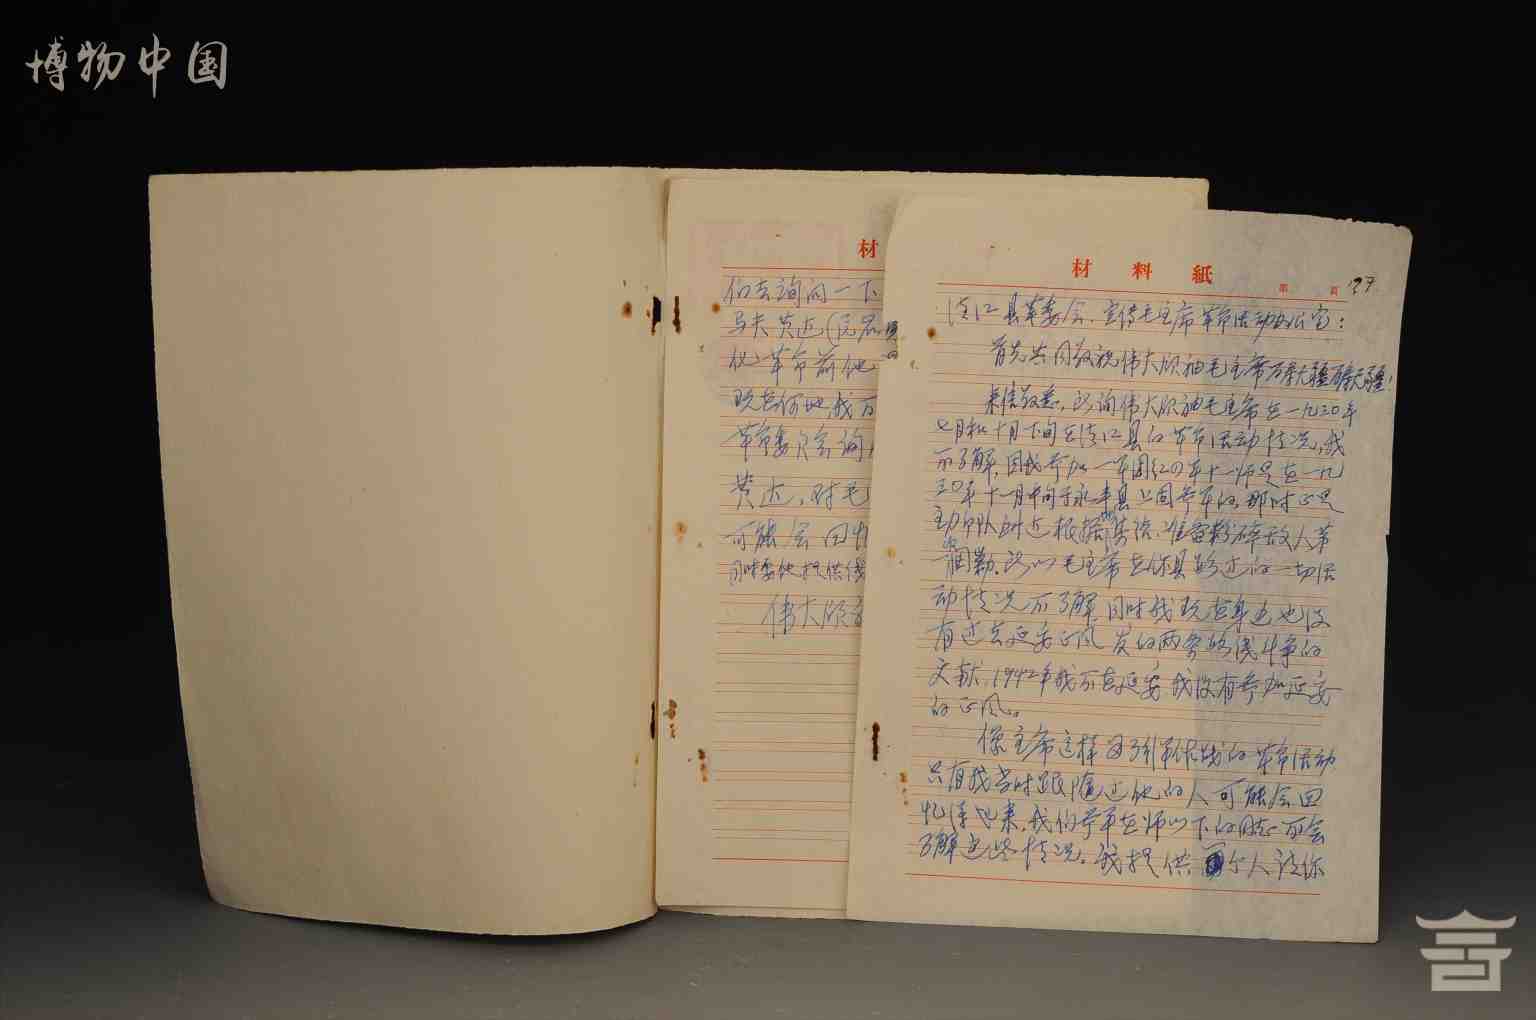 博物中国
材
们去询问一下
马夫黄达(民农
化)革命前他
现在何地,我可
革命委员会询
黄达,对毛
可能会回忆
同时要他提供线
伟大领
材料紙
第 頁 27
清江县革委会、宣传毛主席革命活动办公室:
首先共同敬祝伟大领袖毛主席万寿无疆万寿无疆!
来信敬悉,所询伟大领袖毛主席在一九三0年
七月和十月下旬在清江县的革命活动情况,我
不了解,因我参加一军团红四军十一师是在一九
三0年十一月中旬于永丰县上固参军的,那时正是
主动 附近根据 准备粉碎敌人第
一次围剿,所以毛主席在你县路过的一切活
动情况不了解,同时我现在身边也没
有过去延安正风 发的两条路线斗争的
文献,1942年我不在延安,我没有参加延安
的正风。
像主席这样 引军作战的革命活动
只有我当时跟随过他的人可能会回
忆得出来,我们参军在师以下的同志不会
了解这些情况。我提供一个人请你